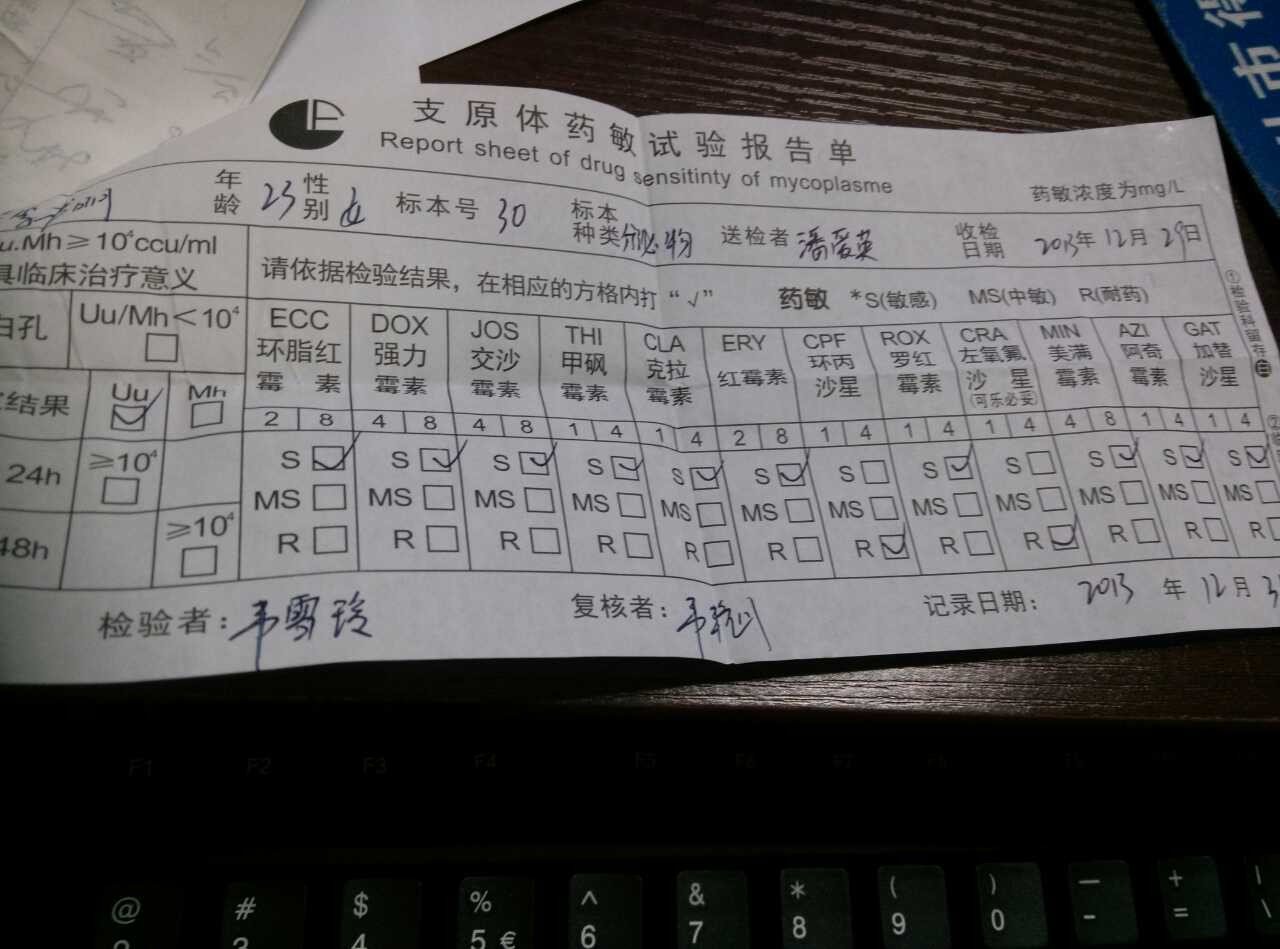 支原体药敏试验报告单
Report sheet of drug sensitinty of mycoplasme
药敏浓度为mg/L
年龄 23 性别 女 标本号 30 标本种类 分泌物 送检者 潘爱英 收检日期 2013年12月29日
u.Mh≥10⁴ccu/ml
具临床治疗意义
请依据检验结果，在相应的方格内打“√” 药敏 *S(敏感) MS(中敏) R(耐药)
白孔 Uu/Mh<10⁴
ECC 环脂红霉素 DOX 强力霉素 JOS 交沙霉素 THI 甲砜霉素 CLA 克拉霉素 ERY 红霉素 CPF 环丙沙星 ROX 罗红霉素 CRA 左氧氟沙星 (可乐必妥) MIN 美满霉素 AZI 阿奇霉素 GAT 加替沙星
结果 Uu Mh
2 8 4 8 4 8 1 4 1 4 2 8 1 4 1 4 1 4 4 8 1 4 1 4
24h ≥10⁴ S S S S S S S S S S S S
MS MS MS MS MS MS MS MS MS MS MS MS
48h ≥10⁴ R R R R R R R R R R R R
检验者：韦雪玲 复核者： 记录日期： 2013 年 12 月 3
①检验科留存
②
市得
F1 F2 F3 F4 F5 F6 F7 F8 F9
@ # $ % ^ & * ( ) — + |
2 3 4 5 € 6 7 8 9 0 - = \